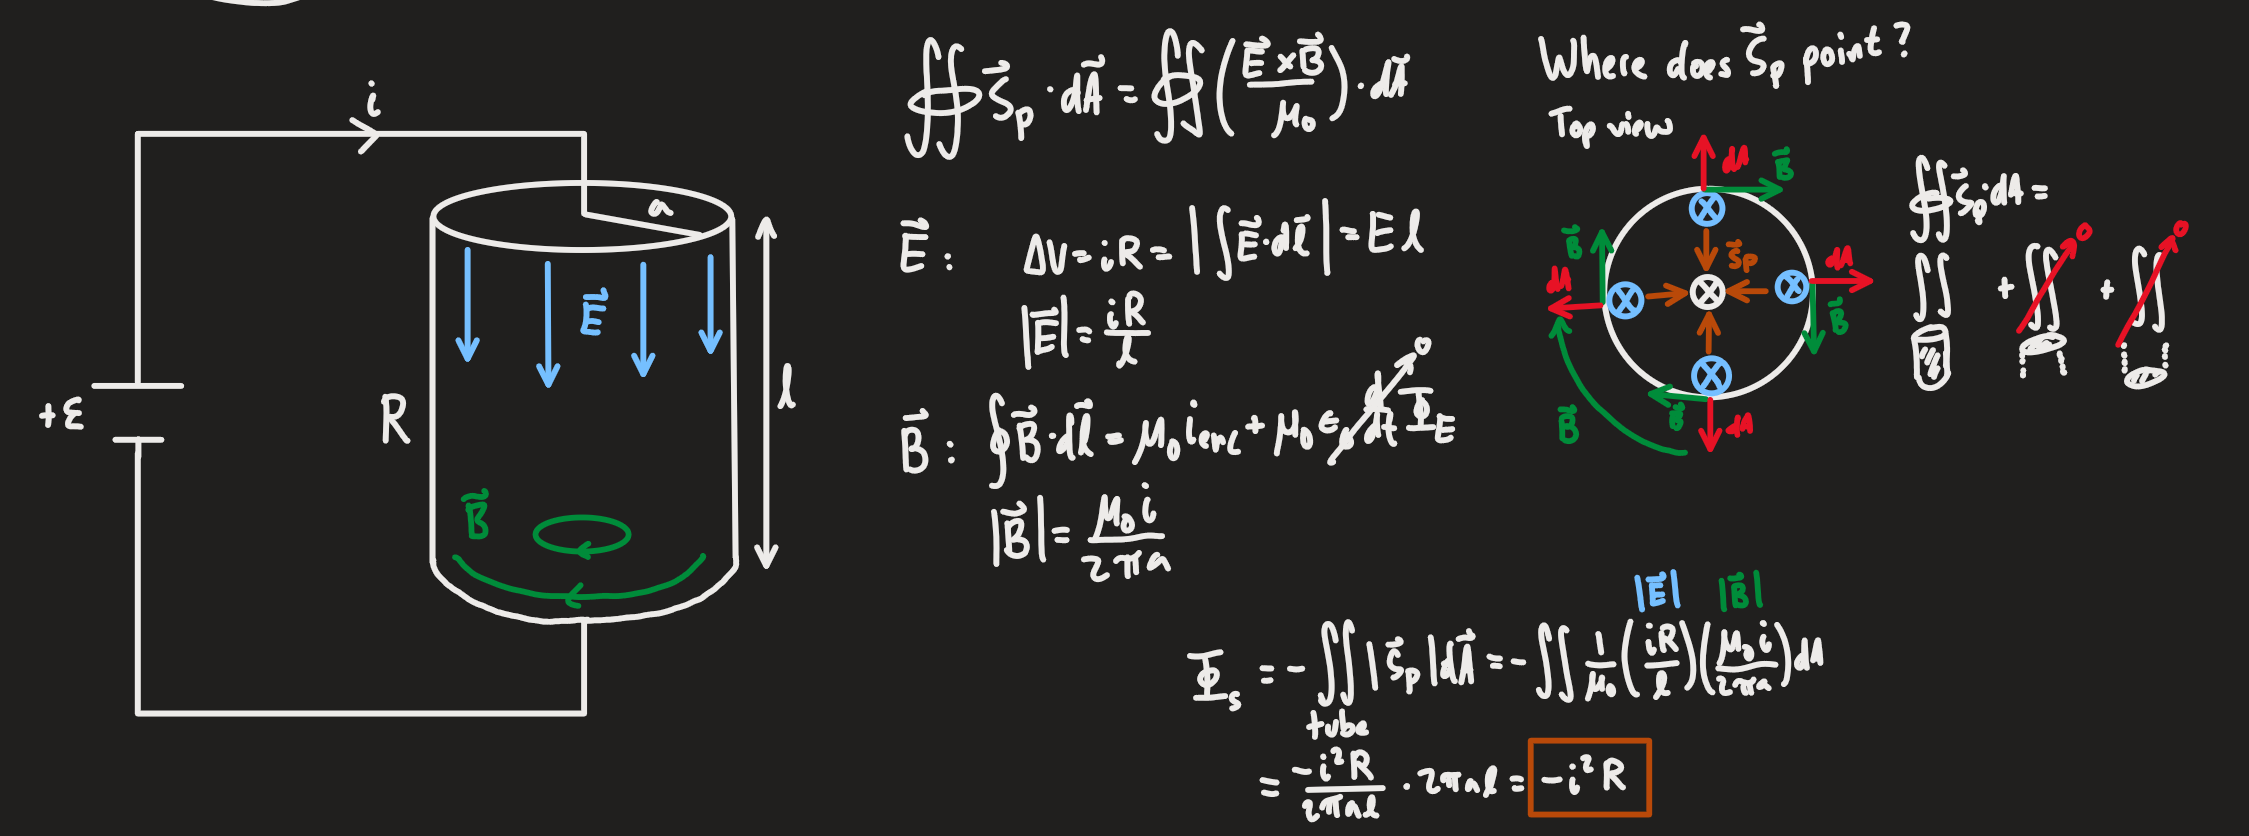 i
a
+ε
R
E⃗
l
B⃗
∯ S⃗ₚ · dA⃗ = ∯ (E⃗ × B⃗ / μ₀) · dA⃗
E⃗ : ΔV = iR = |∫ E⃗ · dl⃗| = E l
|E⃗| = iR / l
B⃗ : ∮ B⃗ · dl⃗ = μ₀ i_enc + μ₀ ε₀ d/dt Φ_E → 0
|B⃗| = μ₀ i / 2πa
Where does S⃗ₚ point?
Top view
dA B⃗
B⃗ S⃗ₚ dA
dA B⃗
B⃗ B⃗ dA
∯ S⃗ₚ · dA =
∬ + ∬ → 0 + ∬ → 0
|E⃗| |B⃗|
Φₛ = - ∬ |S⃗ₚ| dA⃗ = - ∬ 1/μ₀ (iR / l) (μ₀ i / 2πa) dA
tube
= -i²R / 2πal · 2πal = -i²R